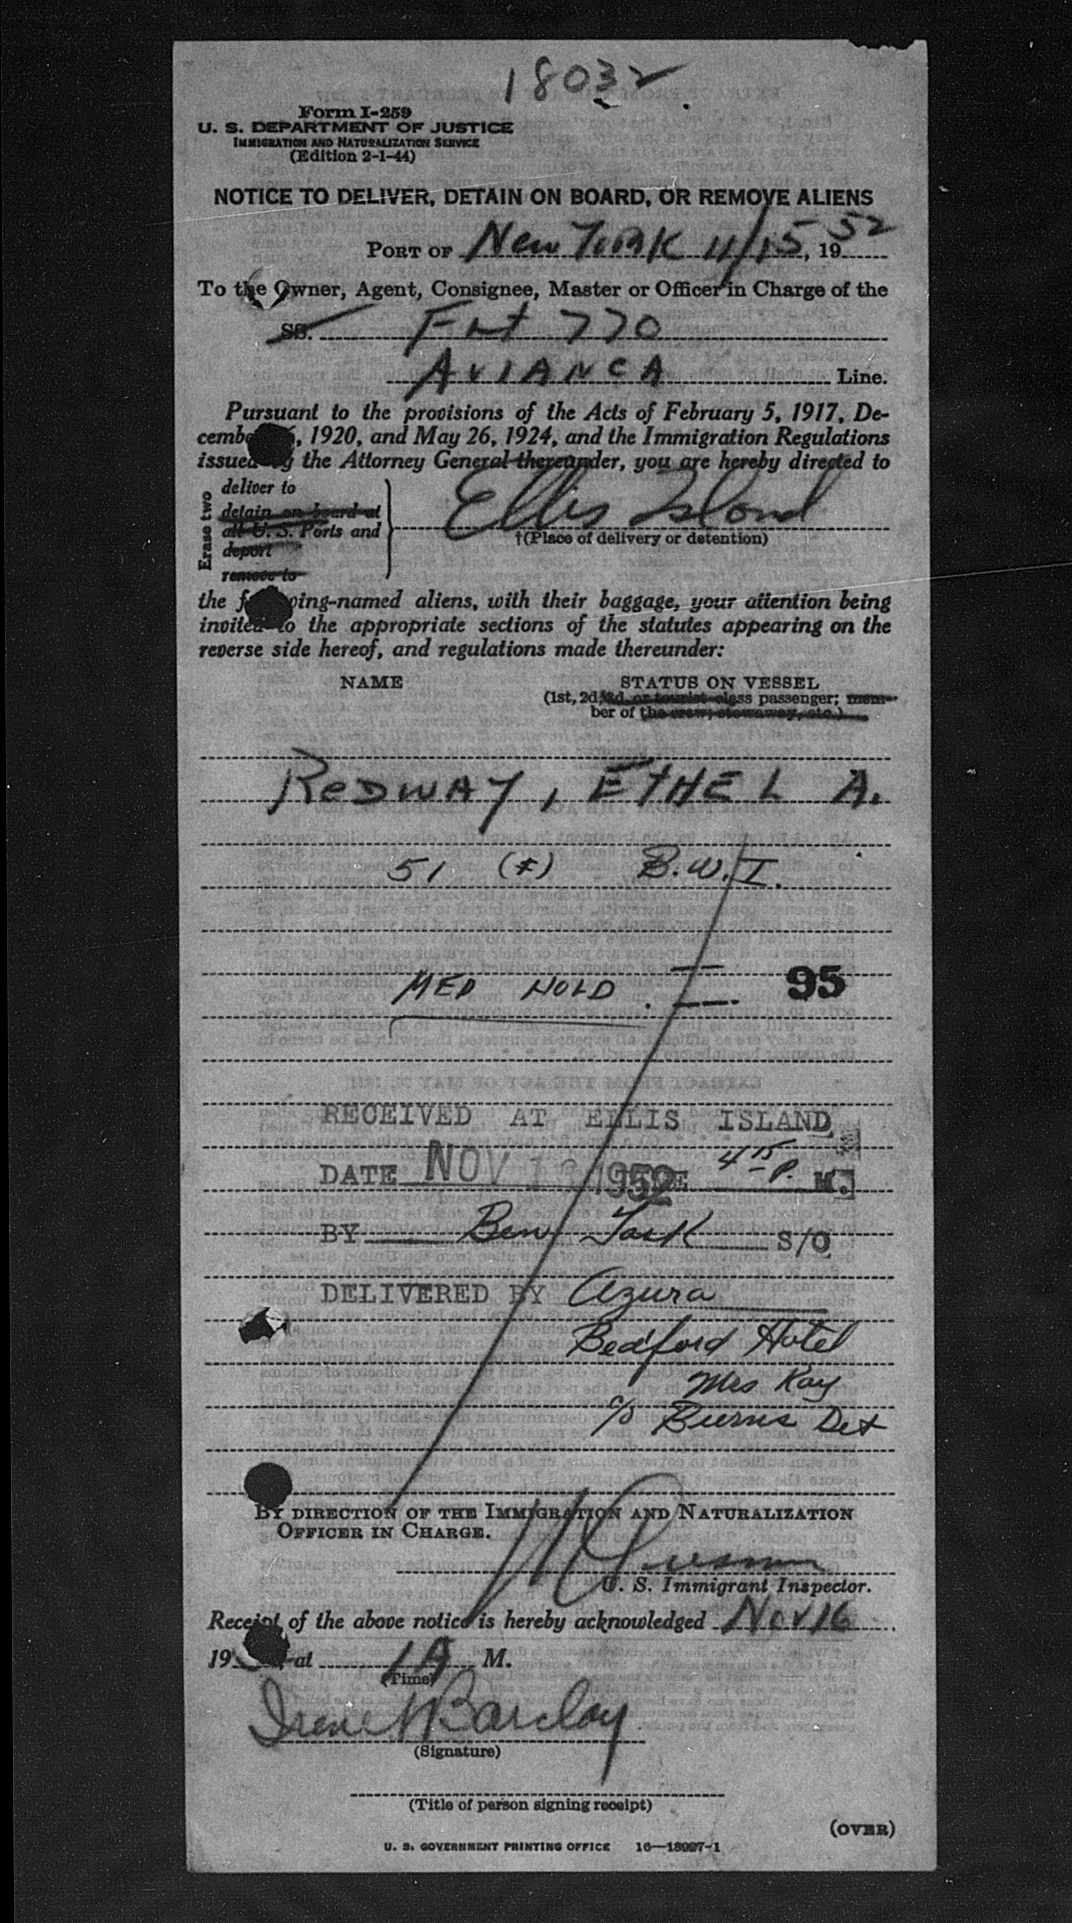 18032
Form I-259
U. S. DEPARTMENT OF JUSTICE
IMMIGRATION AND NATURALIZATION SERVICE
(Edition 2-1-44)
NOTICE TO DELIVER, DETAIN ON BOARD, OR REMOVE ALIENS
PORT OF New York 11/15, 19 52
To the Owner, Agent, Consignee, Master or Officer in Charge of the
SS. Flt 770
AVIANCA Line.
Pursuant to the provisions of the Acts of February 5, 1917, De-
cembe , 1920, and May 26, 1924, and the Immigration Regulations
issued by the Attorney General thereunder, you are hereby directed to
Erase two
deliver to
detain on board at
all U. S. Ports and
deport
remove to
Ellis Island
†(Place of delivery or detention)
the following-named aliens, with their baggage, your attention being
invited to the appropriate sections of the statutes appearing on the
reverse side hereof, and regulations made thereunder:
NAME STATUS ON VESSEL
(1st, 2d, 3d, or tourist class passenger; mem-
ber of the crew; stowaway, etc.)
REDWAY, ETHEL A.
51 B.W.I.
MED HOLD. 95
RECEIVED AT ELLIS ISLAND
DATE NOV 1952 4 15 P. M.
BY Ben S/O
DELIVERED BY Azura
Bedford Hotel
Mrs Kay
c/o Burns Det
BY DIRECTION OF THE IMMIGRATION AND NATURALIZATION
OFFICER IN CHARGE.
U. S. Immigrant Inspector.
Receipt of the above notice is hereby acknowledged Nov 16
19 at 1 A M.
(Time)
Irene Barclay
(Signature)
(Title of person signing receipt)
(OVER)
U. S. GOVERNMENT PRINTING OFFICE 16—18097-1